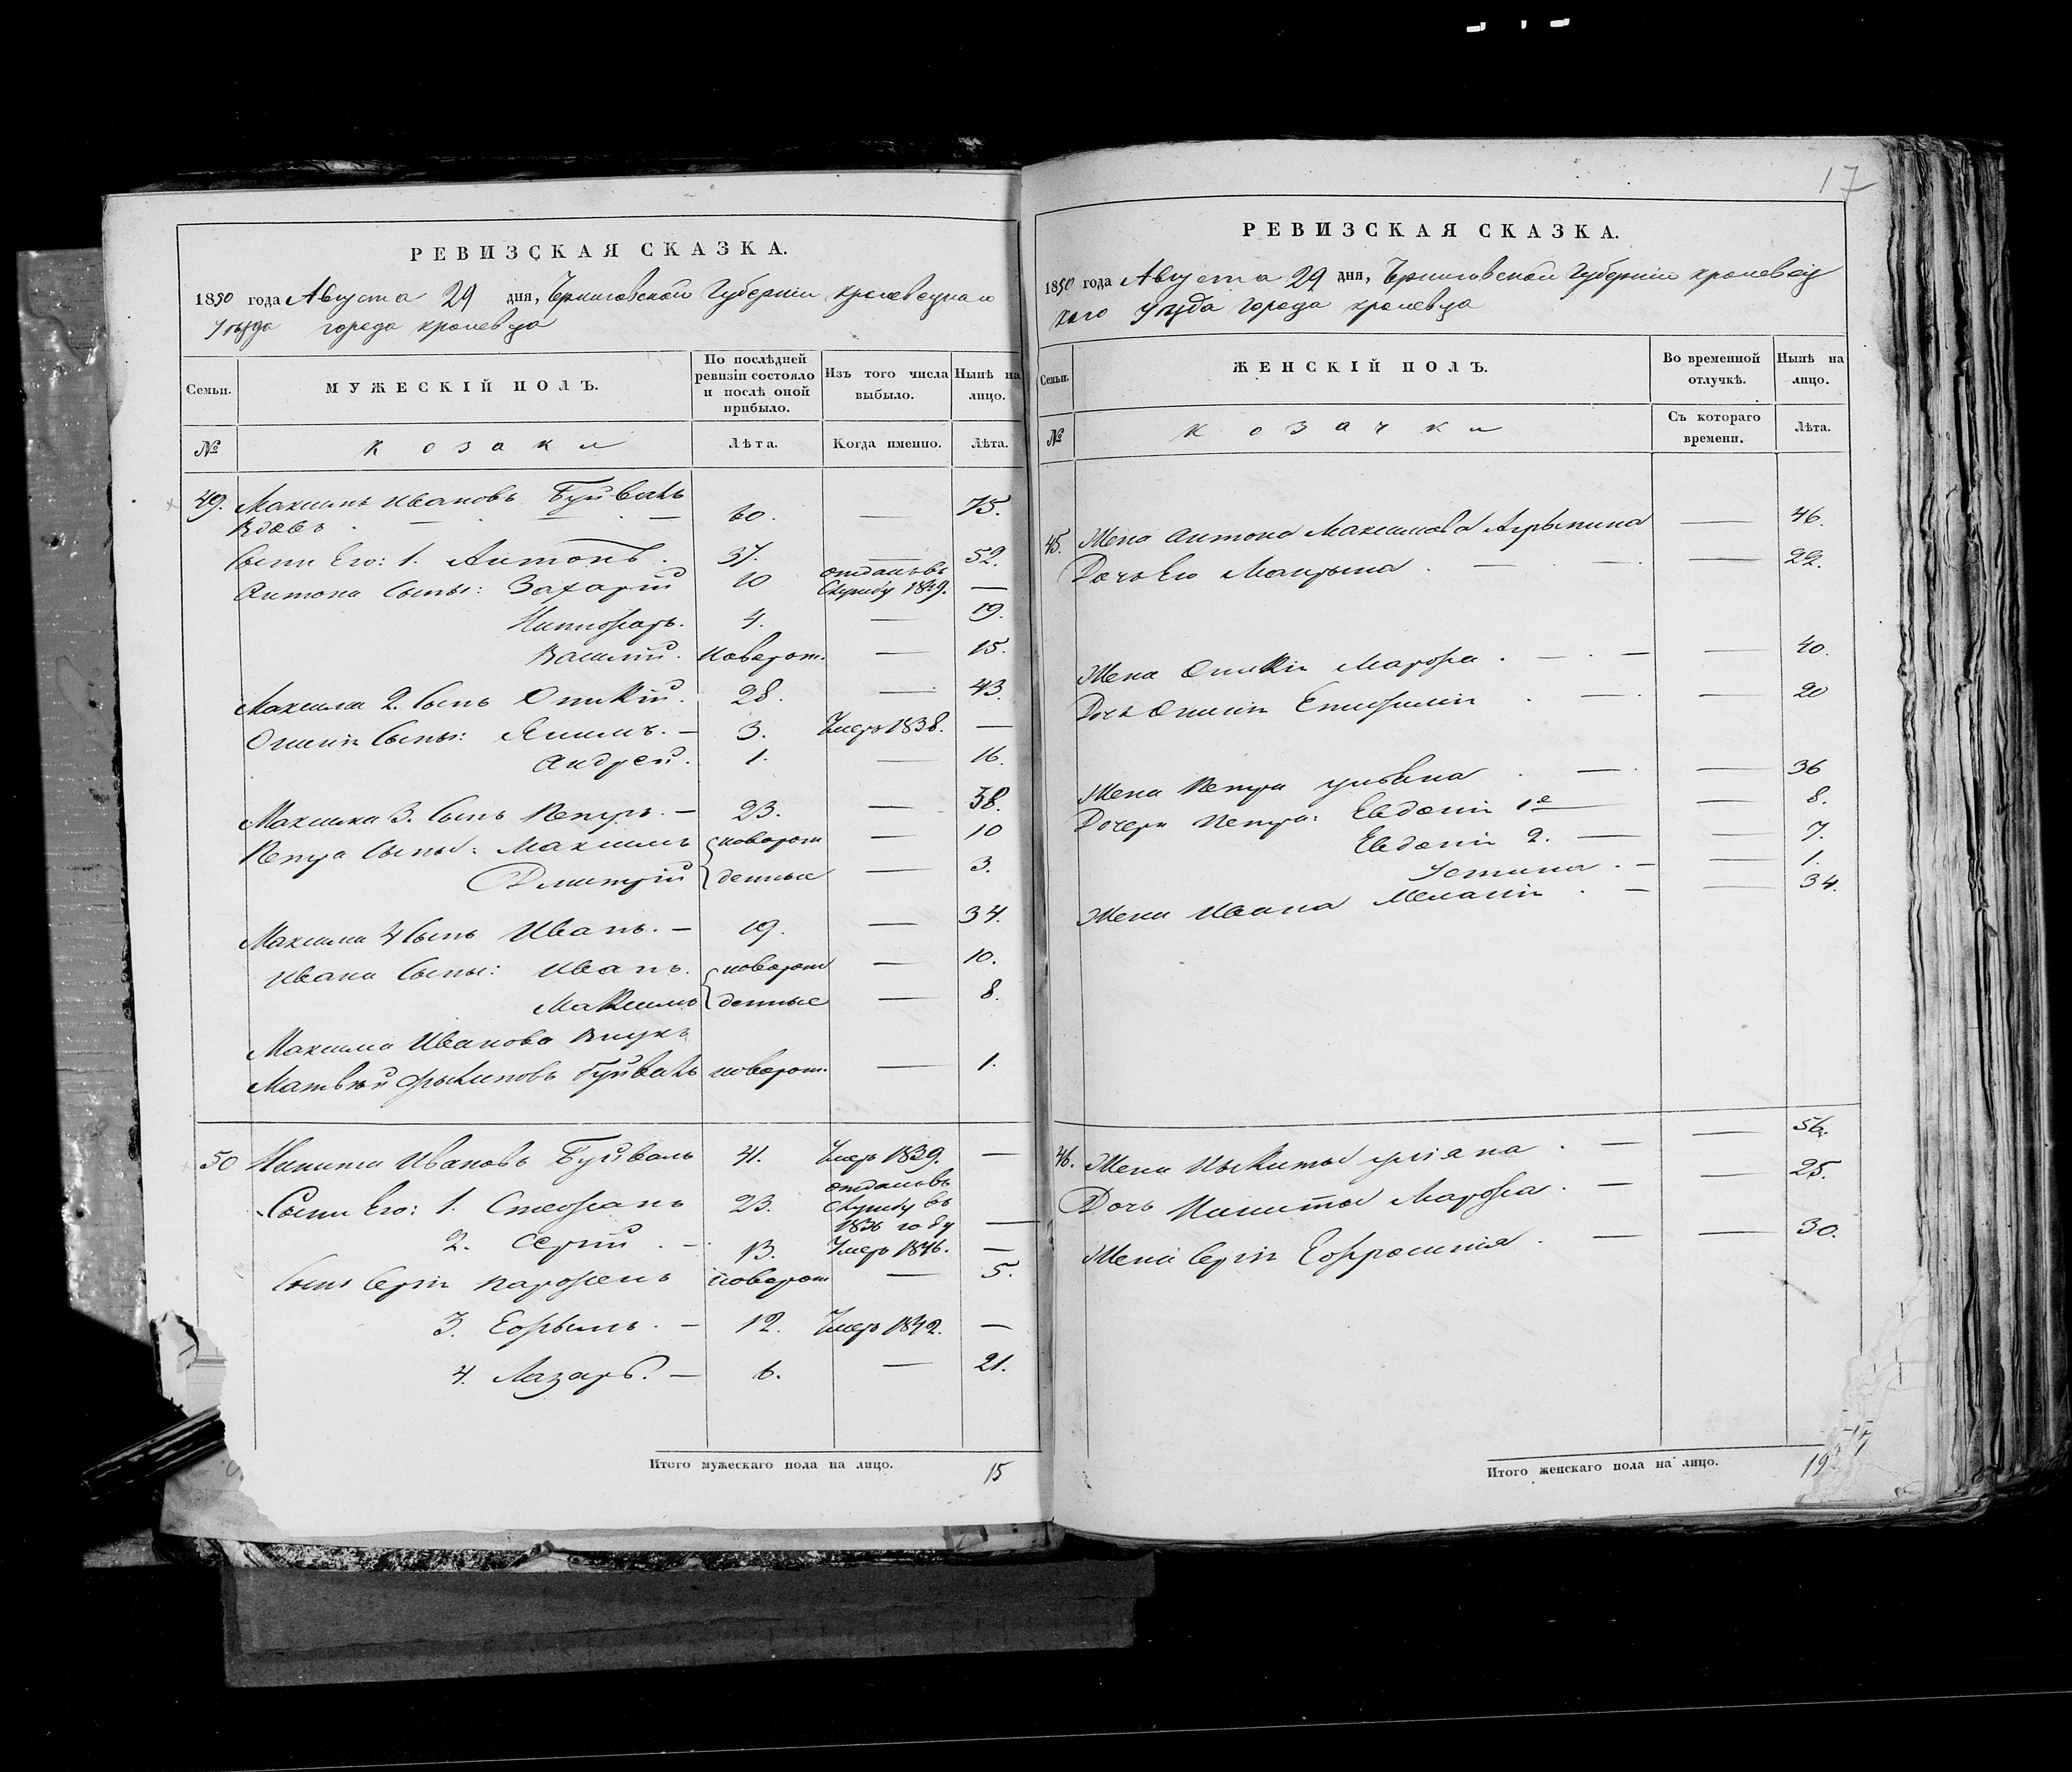 РЕВИЗСКАЯ СКАЗКА.
1850 года Августа 29 дня, Черниговской Губернiи Кролевецкаго
Уѣзда города Кролевца
Семьи.
МУЖЕСКІЙ ПОЛЪ.
По послѣдней ревизіи состояло и послѣ оной прибыло.
Изъ того числа выбыло.
Нынѣ на лицо.
№
Козаки
Лѣта.
Когда именно.
Лѣта.
49. Максимъ Ивановъ Буйваль
Вдовъ 60. — 75.
Сыни Его: 1. Антонъ. 37. — 52.
Антона Сыны: Захарій 10 отданъ въ Службу 1849. —
Никифоръ. 4. — 19.
Василій. новорож. — 15.
Максима 2. Сынъ 28. — 43.
Сыны: Якимъ. — 3. Умеръ 1838. —
Андрей. 1. — 16.
Максима 3. Сынъ Петръ. — 23. — 38.
Петра Сыны: Максимъ новорож — 10
Дмитрій денные — 3.
Максима 4 Сынъ Иванъ. — 19. — 34.
Ивана Сыны: Иванъ. новорож — 10.
Максимъ денные — 8.
Максима Иванова Внукъ
Матвѣй Буйваль новорож. — 1.
50 Никита Ивановъ Буйваль 41. Умеръ 1839. —
Сыни Его: 1. Стефанъ 23. отданъ въ Службу въ 1836 году —
2. Сергій. — 13. Умеръ 1846. —
Сынъ Сергія Парфенъ новорож — 5.
3. Ефимъ. — 12. Умеръ 1842. —
4. Лазарь. — 6. — 21.
Итого мужескаго пола на лицо. 15
17
РЕВИЗСКАЯ СКАЗКА.
1850 года Августа 29 дня, Черниговской Губернiи Кролевец
каго Уѣзда города Кролевца
Семьи.
ЖЕНСКІЙ ПОЛЪ.
Во временной отлучкѣ.
Нынѣ на лицо.
№
Козачки
Съ котораго времени.
Лѣта.
45. Жена Антона Максимова — 46.
Дочь Его — 22.
Жена Марфа. — 40.
Дочь — 20
Жена Петра Ульяна — 36
Дочери Петра: Евдокія 1е — 8.
Евдокія 2. — 7.
Устина. — 1.
Жена Ивана Меланія — 34.
46. Жена Никиты — 56.
Дочь Никиты Марфа. — 25.
Жена Сергія Ефросинія. — 30.
Итого женскаго пола на лицо. 19